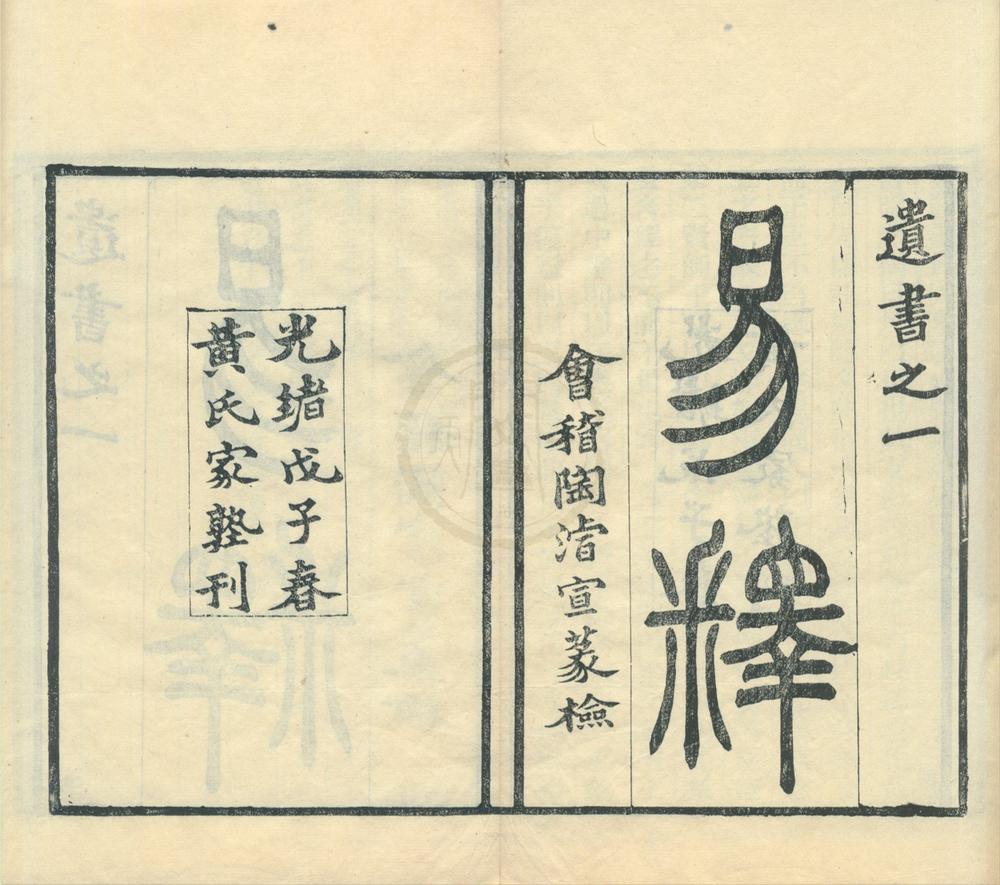 遺書之一
易釋
會稽陶濬宣篆檢
光緒戊子春
黃氏家塾刊